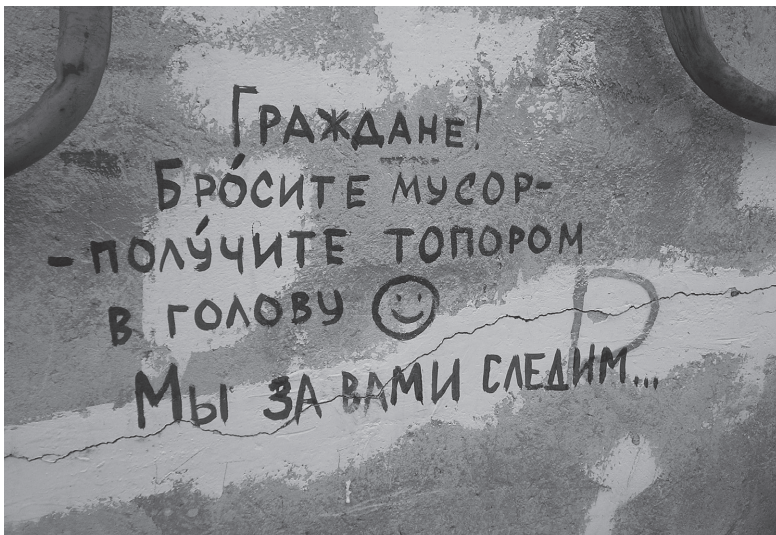 Граждане!
Бро́сите мусор-
-полу́чите топором
в голову ☺
Мы за вами следим...